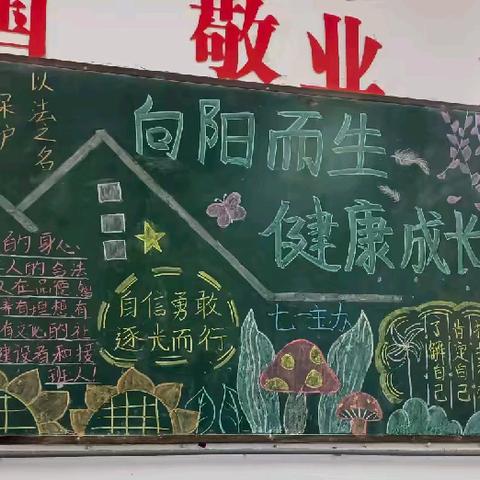 国 敬业
以法之名
保护
向阳而生
健康成长
的身心
人的合法
在品德
有理想有
有文化的社
建设者和接
班人!
自信勇敢
逐光而行
七一主办
肯定自己
了解自己